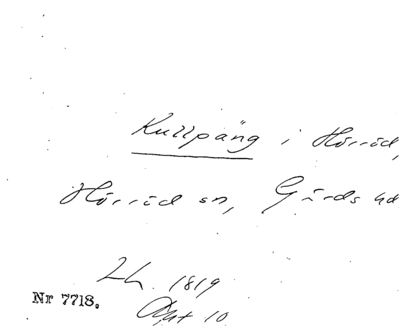 Kullpäng i Hörröd,
Hörröd sn, Gärds hd
Lh. 1819
Nr 7718. Akt 10